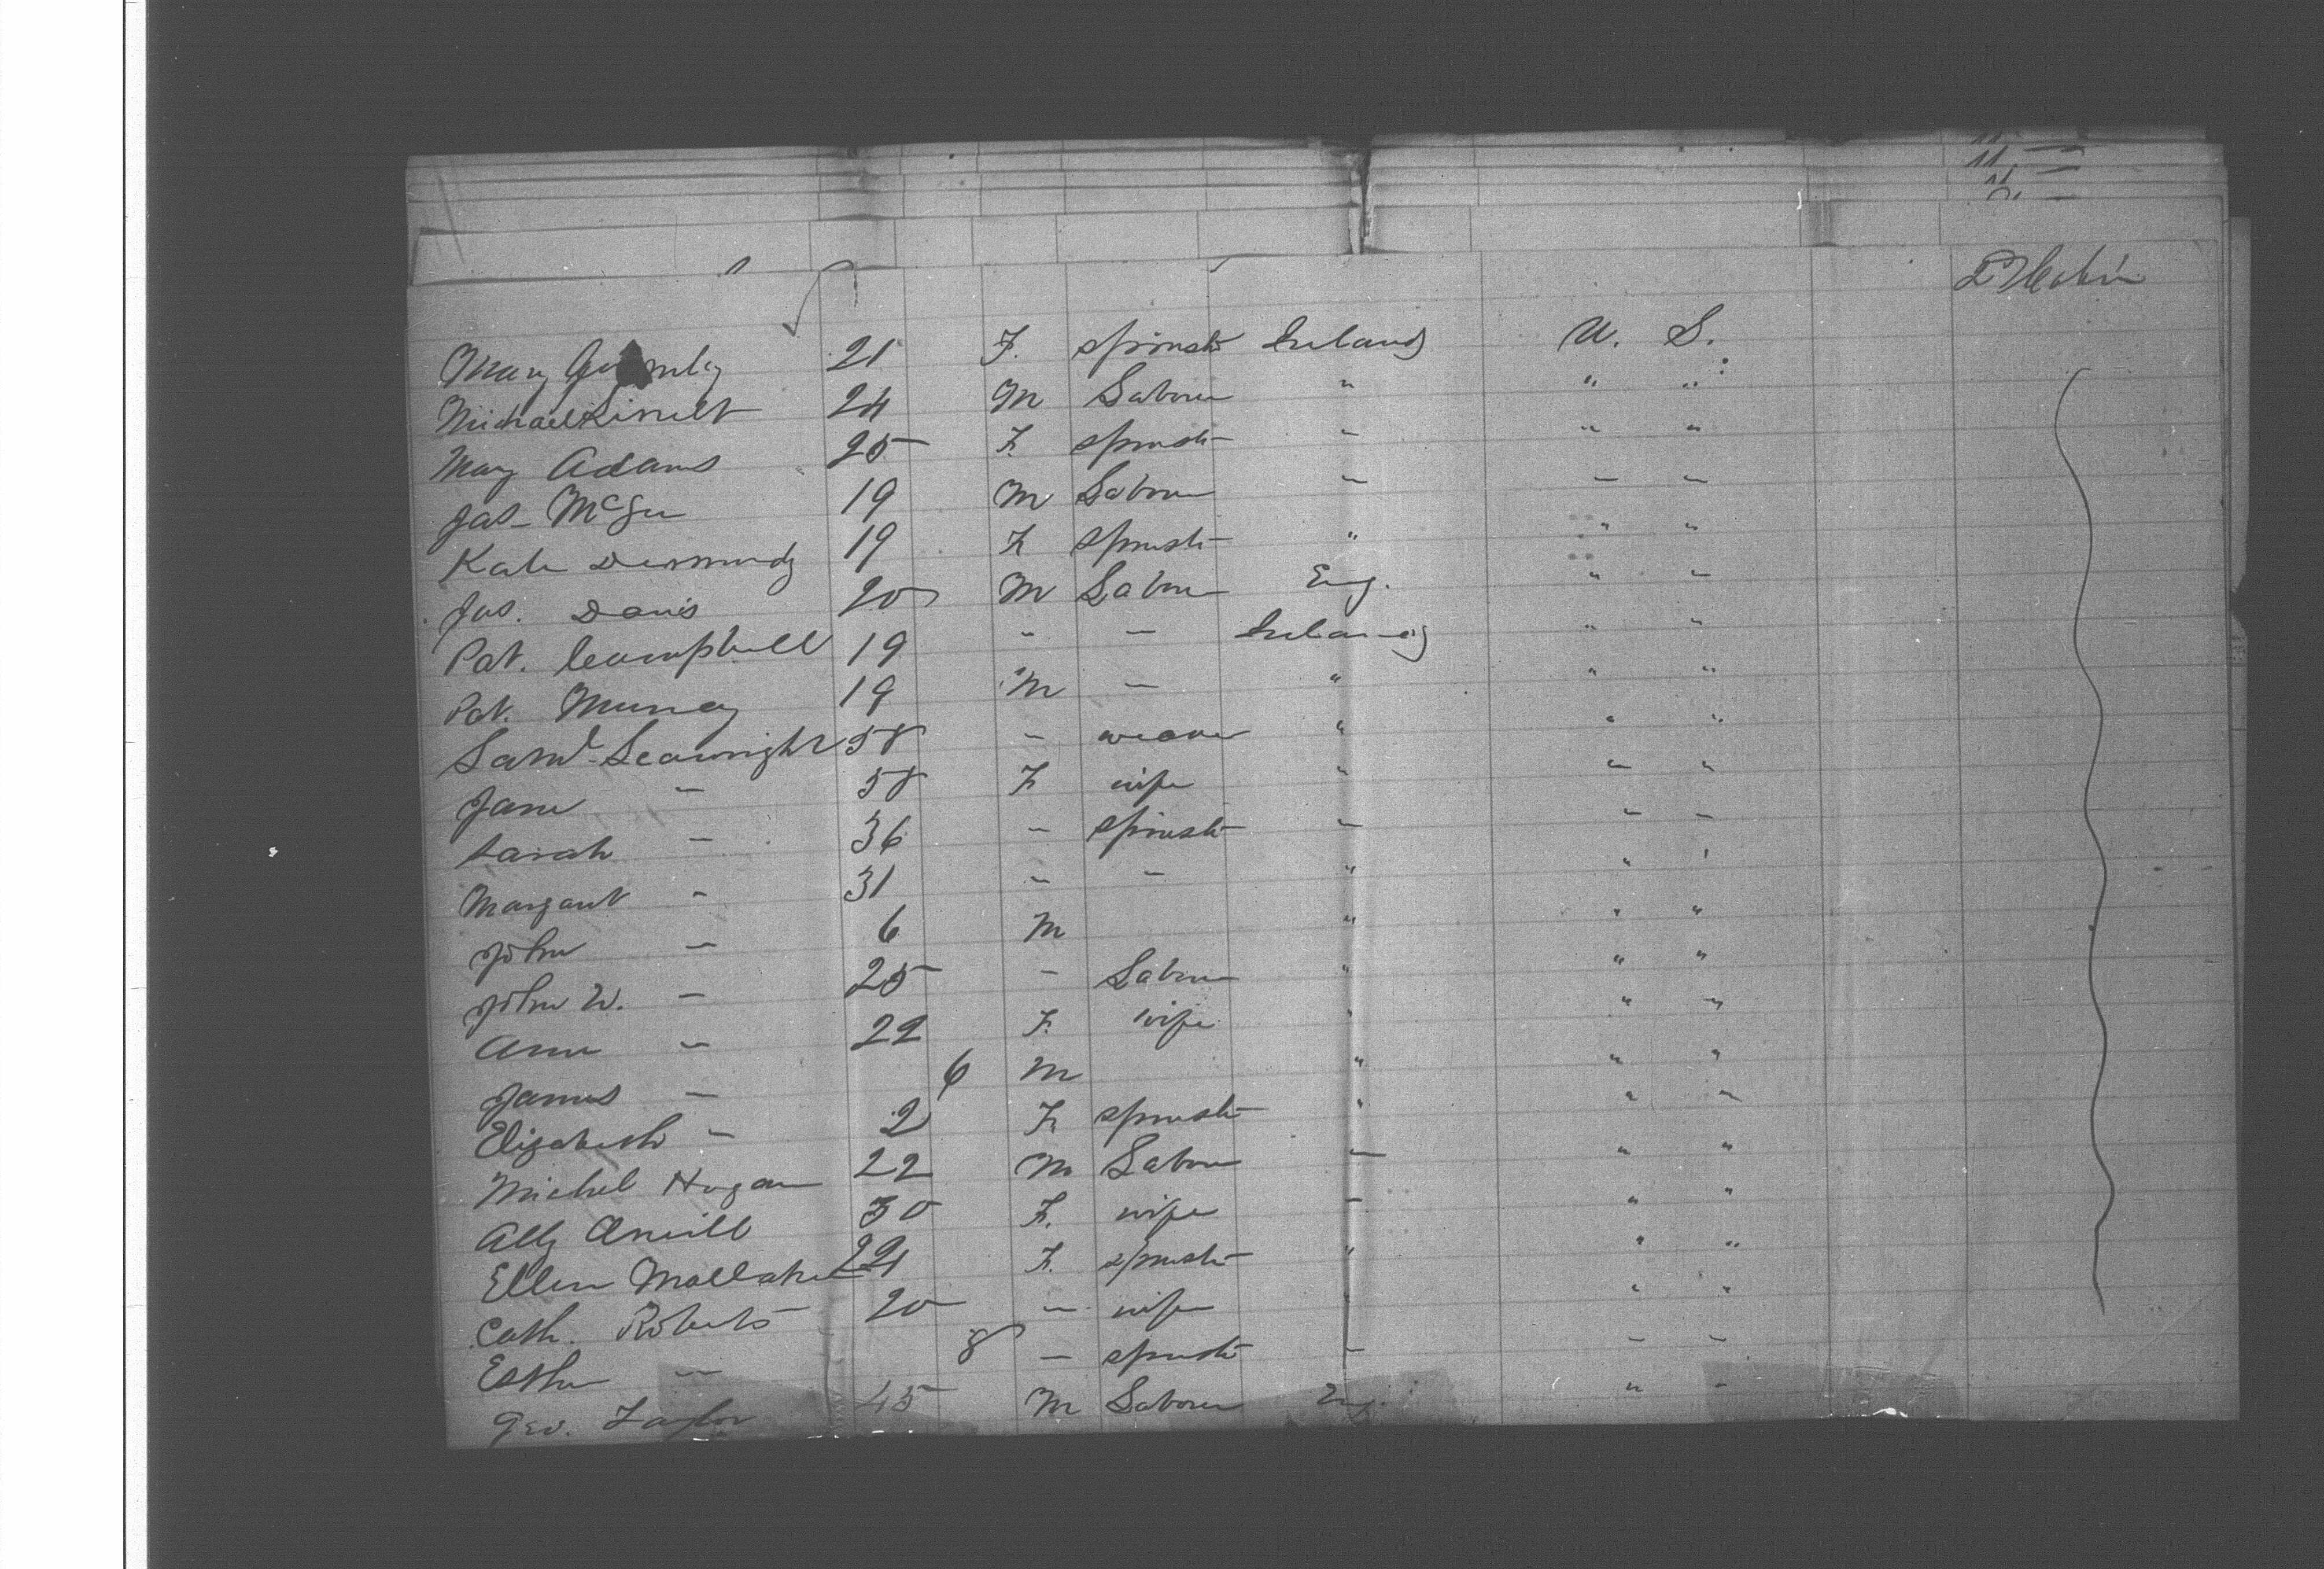 Mary 21 F. spinstr Ireland U. S.
Michael 24 M Labour " " "
Mary Adams 25 F. spinstr " " "
Jas McGee 19 M Labour " " "
Kate Desmond 19 F spinstr " " "
Jas. Davis 20 M Labour Eng. " "
Pat. Campbell 19 " " Ireland " "
Pat. Murray 19 M " " " "
Saml Seawright 58 " weaver " " "
Jane " 58 F wife " " "
Sarah " 36 " spinstr " " "
Margaret " 31 " " " " "
John " 6 M " " "
John W. " 25 " Labour " " "
Anne " 22 F. wife " " "
James " 6 M " " "
Elizabeth " 2 F. spinstr " " "
Michel Hogan 22 M Labour " " "
Ally Oneill 30 F. wife " " "
Ellen F. spinstr " " "
Cath. Roberts 20 " wife " " "
Esther " 8 " spinstr " " "
Geo. Taylor 45 M Labour Eng. " "